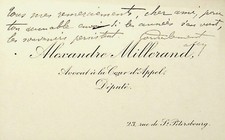 Tous mes remerciements, cher ami, pour
ton semable amis si les années s'en vont,
les souvenirs persistent
Alexandre Millerand,
Avocat à la Cour d'Appel,
Député.
23, rue de St Pétersbourg.